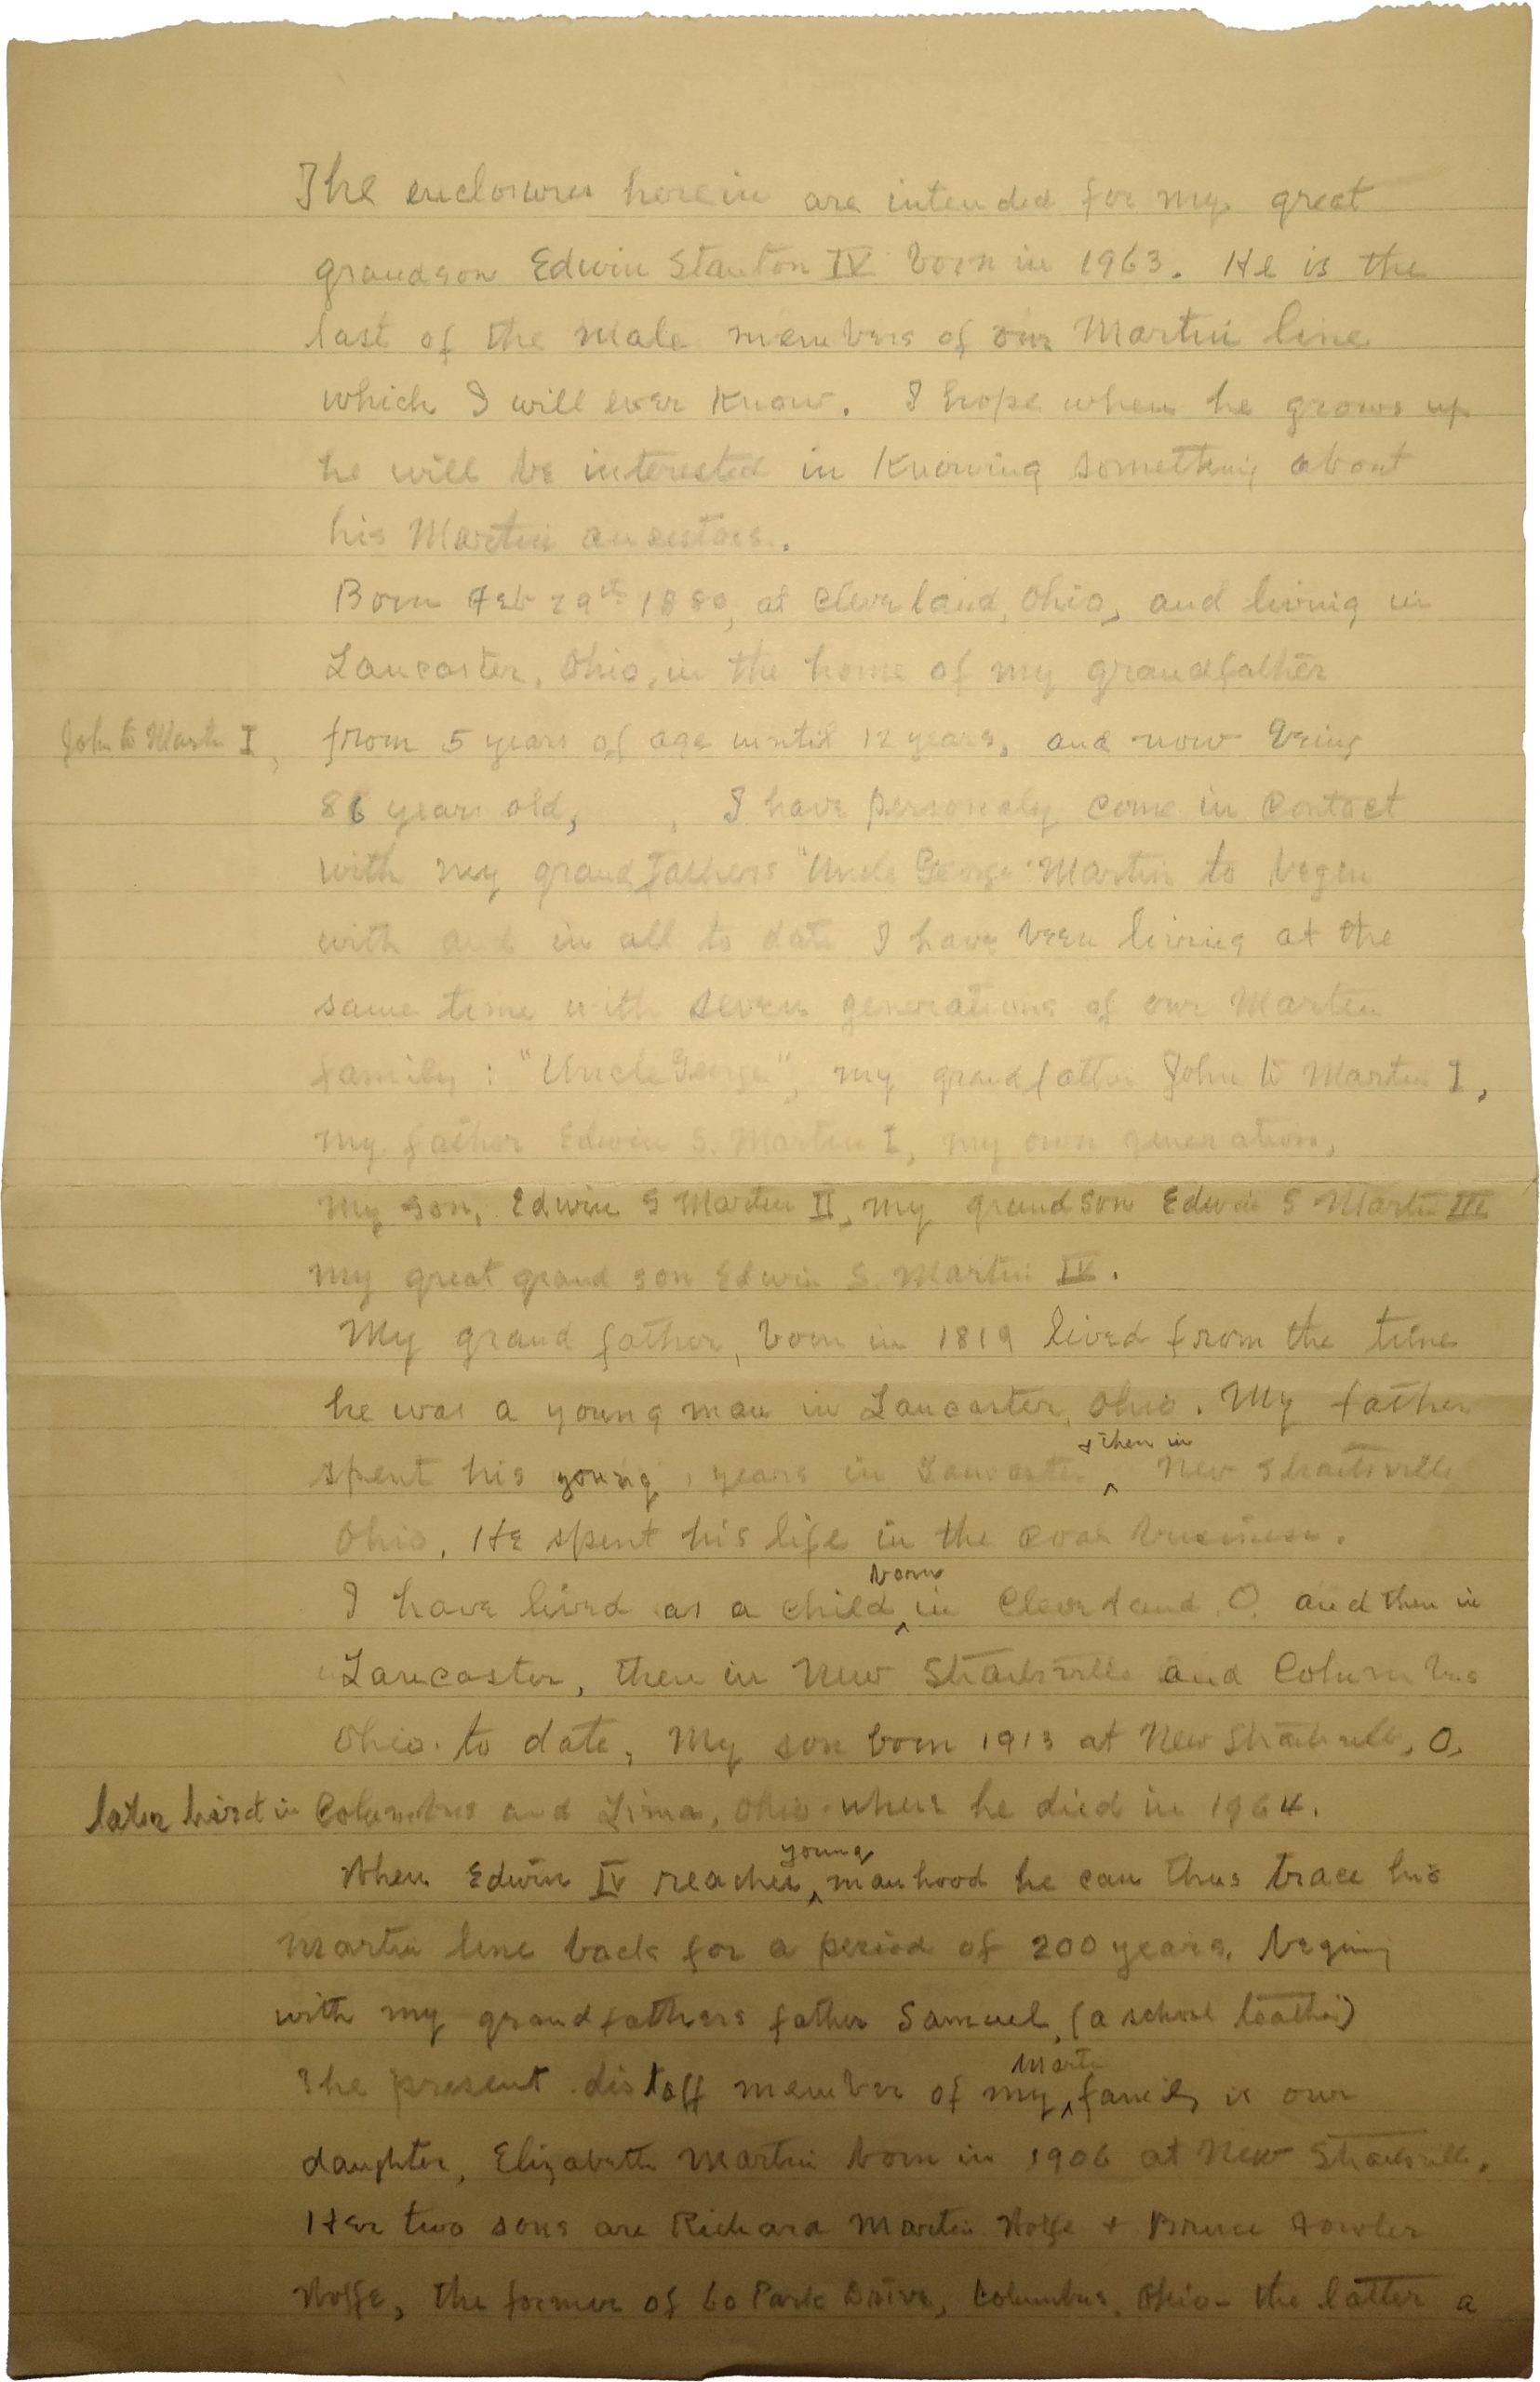 The enclosures herein are intended for my great
grandson Edwin Stanton IV born in 1963. He is the
last of the male members of our Martin line
which I will ever know. I hope when he grows up
he will be interested in knowing something about
his Martin ancestors.
Born Feb 29th 1880, at Cleveland, Ohio, and living in
Lancaster, Ohio, in the home of my grandfather
John W Martin I, from 5 years of age until 12 years, and now being
86 years old, I have personaly come in contact
with my grandfathers "Uncle George" Martin to begin
with and in all to date I have been living at the
same time with seven generations of our Martin
family : "Uncle George", my grandfather John W Martin I,
my father Edwin S. Martin I, my own generation,
my son, Edwin S Martin II, my grandson Edwin S Martin III
my great grand son Edwin S. Martin IV.
My grand father, born in 1819 lived from the time
he was a young man in Lancaster, Ohio. My father
spent his young years in Lancaster & then in New Straitsville
Ohio. He spent his life in the coal business.
I have lived as a child born in Cleveland O. and then in
Lancaster, then in New Straitsville and Columbus
Ohio. to date, My son born 1913 at New Straitsville, O,
later lived in Columbus and Lima, Ohio where he died in 1964.
When Edwin IV reaches young manhood he can thus trace his
Martin line back for a period of 200 years, begining
with my grandfathers father Samuel, (a school teacher)
The present distaff member of my Martin family is our
daughter, Elizabeth Martin born in 1906 at New Straitsville.
Her two sons are Richard Martin Wolfe + Bruce Fowler
Wolfe, the former of 60 Park Drive, Columbus, Ohio - the latter a